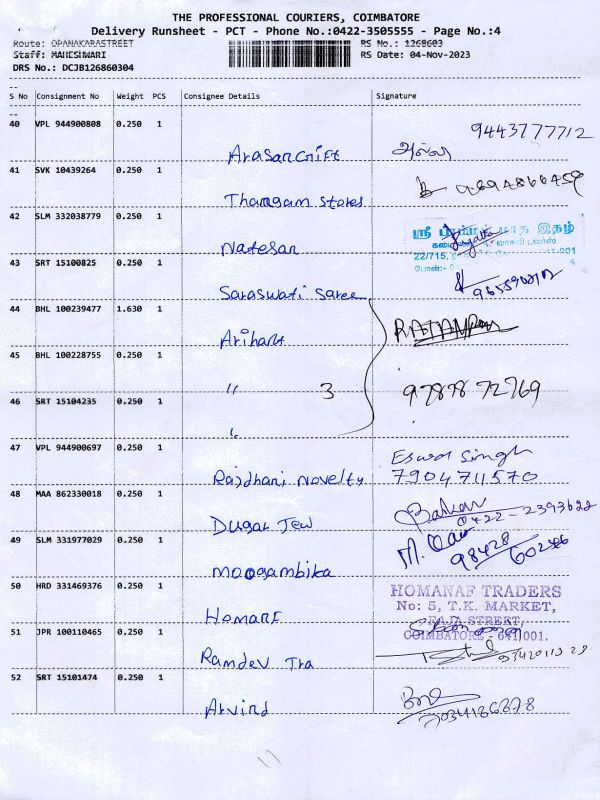 THE PROFESSIONAL COURIERS, COIMBATORE
Delivery Runsheet - PCT - Phone No.:0422-3505555 - Page No.:4
Route: OPANAKARASTREET RS No.: 1268603
Staff: MAHESHWARI RS Date: 04-Nov-2023
DRS No.: DCJB126860304
S No Consignment No Weight PCS Consignee Details Signature
40 VPL 944900808 0.250 1 9443777712
41 SVK 10439264 0.250 1
Thangam Stores
42 SLM 332038779 0.250 1
Natesan
43 SRT 15100825 0.250 1
Saraswati Saree
44 BHL 100239477 1.630 1
Arihant
45 BHL 100228755 0.250 1
" 3 9787872769
46 SRT 15104235 0.250 1
"
47 VPL 944900697 0.250 1 Singh
Rajdhani Novelty 7904711570
48 MAA 862330018 0.250 1
Dugar Jew 0422-2393622
49 SLM 331977029 0.250 1 98428
Moogambika
50 HRD 331469376 0.250 1 HOMANAF TRADERS
No: 5, T.K. MARKET,
RAJA STREET,
51 JPR 100110465 0.250 1 COIMBATORE - 641 001.
Ramdev Tra
52 SRT 15101474 0.250 1
Arvind